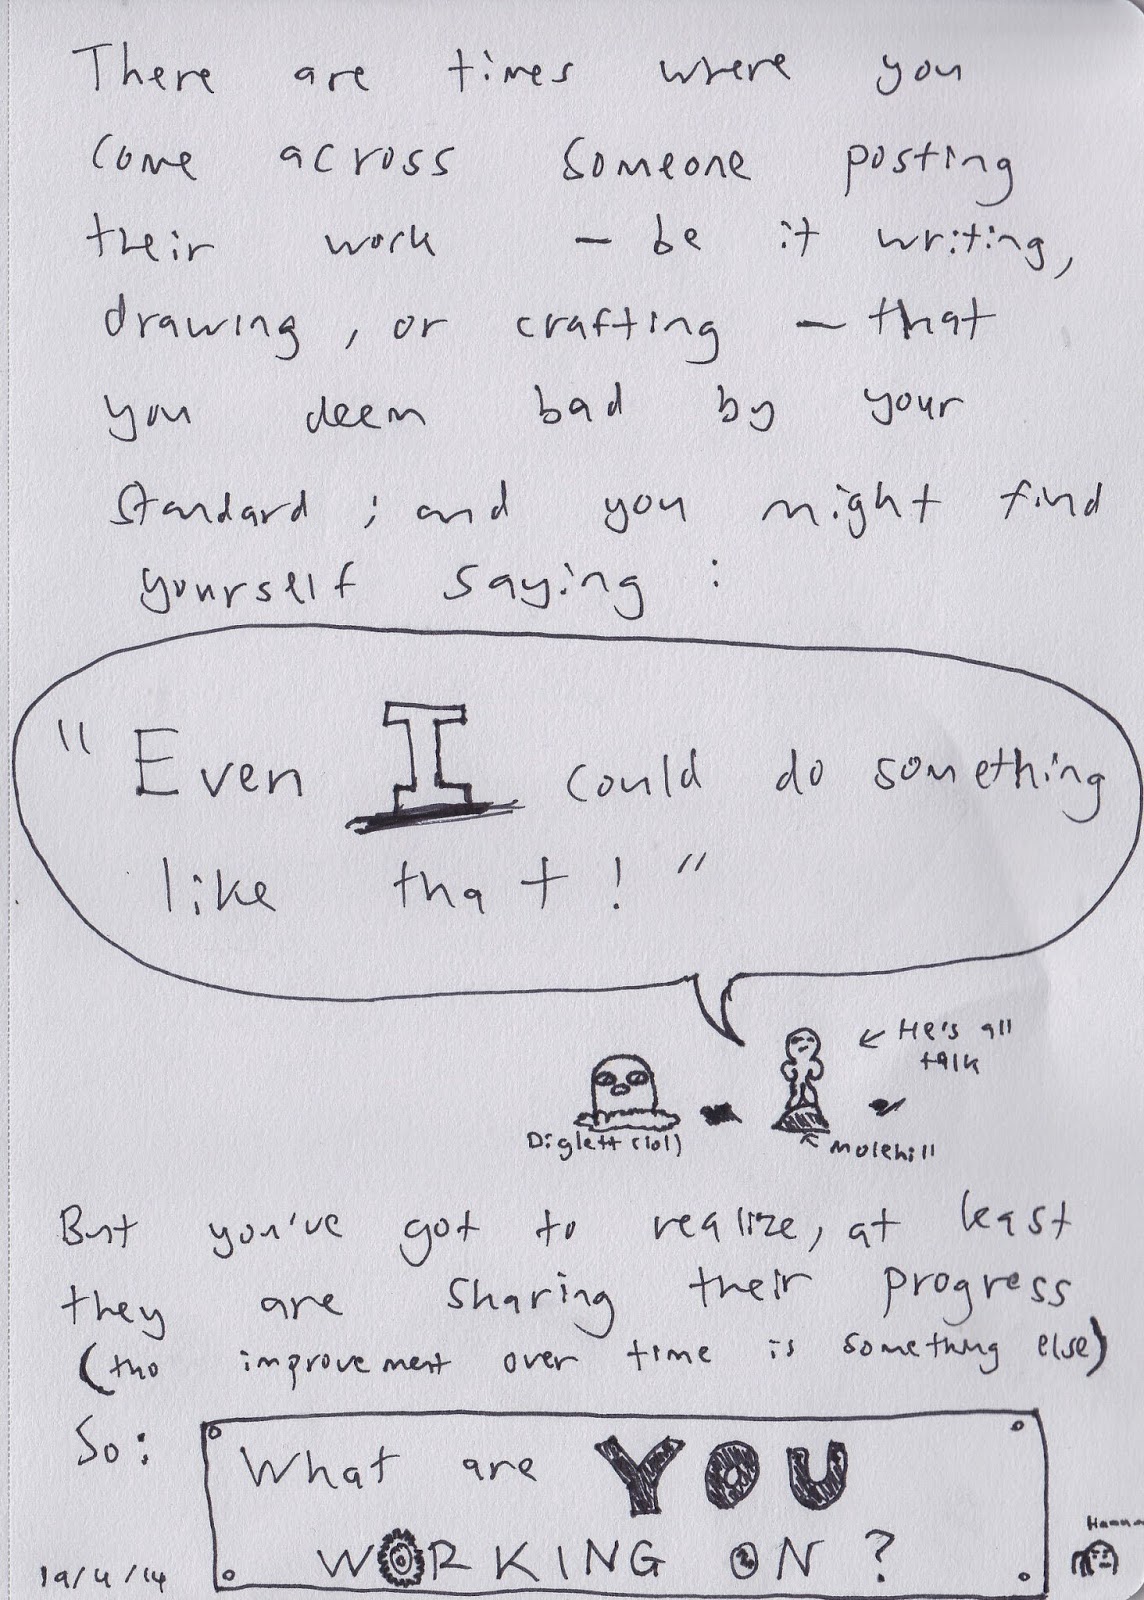 There are times where you
come across someone posting
their work - be it writing,
drawing, or crafting - that
you deem bad by your
standard; and you might find
yourself saying:
"Even I could do something
like that!"
← He's all
talk
Diglett (lol)
Molehill
But you've got to realize, at least
they are sharing their progress
(tho improvement over time is something else)
So:
What are YOU
WORKING ON?
19/4/14